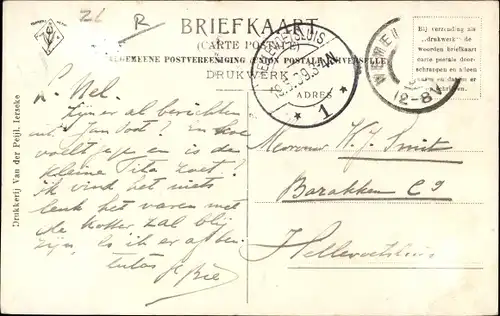 ZL
R
BRIEFKAART
(CARTE POSTALE)
ALGEMEENE POSTVEREENIGING (UNION POSTALE UNIVERSELLE)
DRUKWERK
ADRES
HELLEVOETSLUIS
1
12-8V
Bij verzending als
„drukwerk" de
woorden briefkaart
carte postale door-
schrappen en alleen
naam en datum er
op invullen.
Drukkerij Van der Peijl, Ierseke
L. Nel.
Zijn er al berichten
uit Jan Loot? En hoe
voelt je je en is den
kleine Tita zoet?
ik vind het niets
leuk het varen met
de kotter zal blij
zijn, als ik er af ben.
Mevrouw W. J. Smit
Barakken C 9
Hellevoetsluis